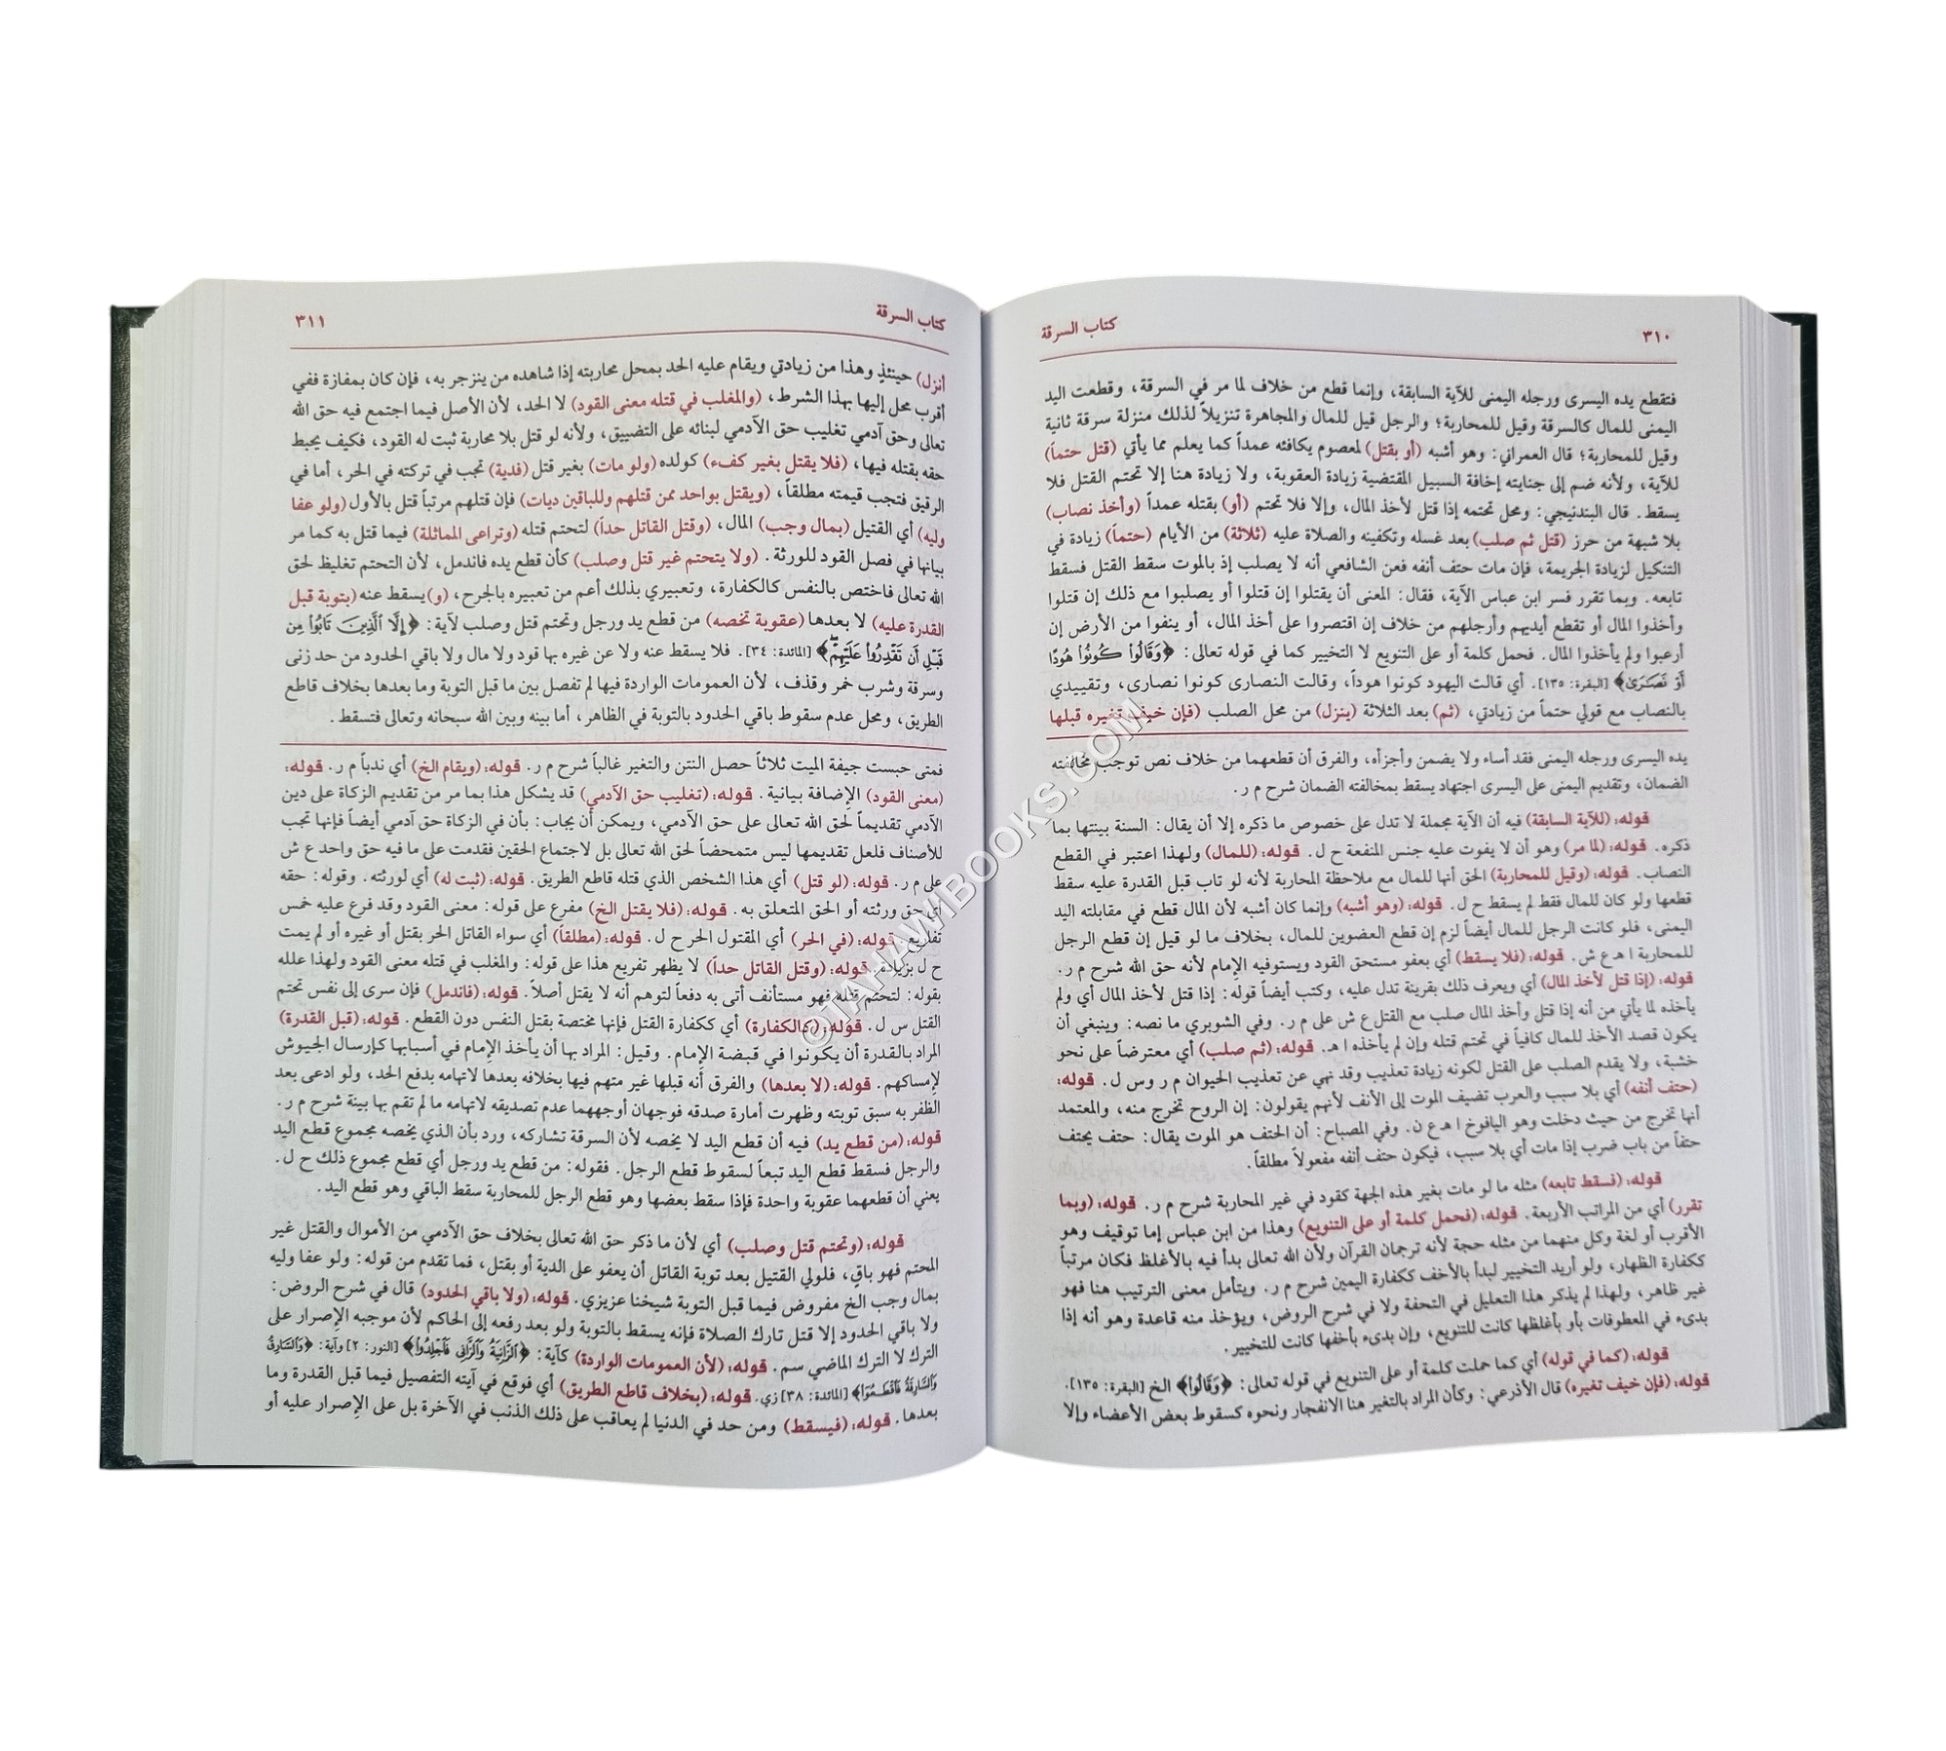 ٣١٠
كتاب السرقة
فتقطع يده اليسرى ورجله اليمنى للآية السابقة، وإنما قطع من خلاف لما مر في السرقة، وقطعت اليد
اليمنى للمال كالسرقة وقيل للمحاربة؛ والرجل قيل للمال والمجاهرة تنزيلاً لذلك منزلة سرقة ثانية
وقيل للمحاربة؛ قال العمراني: وهو أشبه (أو بقتل) لمعصوم يكافئه عمداً كما يعلم مما يأتي (قتل حتماً)
للآية، ولأنه ضم إلى جنايته إخافة السبيل المقتضية زيادة العقوبة، ولا زيادة هنا إلا تحتم القتل فلا
يسقط. قال البندنيجي: ومحل تحتمه إذا قتل لأخذ المال، وإلا فلا تحتم (أو) بقتله عمداً (وأخذ نصاب)
بلا شبهة من حرز (قتل ثم صلب) بعد غسله وتكفينه والصلاة عليه (ثلاثة) من الأيام (حتماً) زيادة في
التنكيل لزيادة الجريمة، فإن مات حتف أنفه فعن الشافعي أنه لا يصلب إذ بالموت سقط القتل فسقط
تابعه. وبما تقرر فسر ابن عباس الآية، فقال: المعنى أن يقتلوا إن قتلوا أو يصلبوا مع ذلك إن قتلوا
وأخذوا المال أو تقطع أيديهم وأرجلهم من خلاف إن اقتصروا على أخذ المال، أو ينفوا من الأرض إن
أرعبوا ولم يأخذوا المال. فحمل كلمة أو على التنويع لا التخيير كما في قوله تعالى: ﴿وَقَالُوا۟ كُونُوا۟ هُودًا
أَوْ نَصَـٰرَىٰ﴾ [البقرة: ١٣٥]. أي قالت اليهود كونوا هوداً، وقالت النصارى كونوا نصارى، وتقييدي
بالنصاب مع قولي حتماً من زيادتي، (ثم) بعد الثلاثة (ينزل) من محل الصلب (فإن خيف تغيره قبلها
يده اليسرى ورجله اليمنى فقد أساء ولا يضمن وأجزأه، والفرق أن قطعهما من خلاف نص توجب مخالفته
الضمان، وتقديم اليمنى على اليسرى اجتهاد يسقط بمخالفته الضمان شرح م ر.
قوله: (للآية السابقة) فيه أن الآية مجملة لا تدل على خصوص ما ذكره إلا أن يقال: السنة بينتها بما
ذكره. قوله: (لما مر) وهو أن لا يفوت عليه جنس المنفعة ح ل. قوله: (للمال) ولهذا اعتبر في القطع
النصاب. قوله: (وقيل للمحاربة) الحق أنها للمال مع ملاحظة المحاربة لأنه لو تاب قبل القدرة عليه سقط
قطعها ولو كان للمال فقط لم يسقط ح ل. قوله: (وهو أشبه) وإنما كان أشبه لأن المال قطع في مقابلته اليد
اليمنى، فلو كانت الرجل للمال أيضاً لزم إن قطع العضوين للمال، بخلاف ما لو قيل إن قطع الرجل
للمحاربة ا هـ ع ش. قوله: (فلا يسقط) أي بعفو مستحق القود ويستوفيه الإمام لأنه حق الله شرح م ر.
قوله: (إذا قتل لأخذ المال) أي ويعرف ذلك بقرينة تدل عليه، وكتب أيضاً قوله: إذا قتل لأخذ المال أي ولم
يأخذه لما يأتي من أنه إذا قتل وأخذ المال صلب مع القتل ع ش على م ر. وفي الشوبري ما نصه: وينبغي أن
يكون قصد الأخذ للمال كافياً في تحتم قتله وإن لم يأخذه ا هـ. قوله: (ثم صلب) أي معترضاً على نحو
خشبة، ولا يقدم الصلب على القتل لكونه زيادة تعذيب وقد نهي عن تعذيب الحيوان م ر وس ل. قوله:
(حتف أنفه) أي بلا سبب والعرب تضيف الموت إلى الأنف لأنهم يقولون: إن الروح تخرج منه، والمعتمد
أنها تخرج من حيث دخلت وهو اليافوخ ا هـ ع ن. وفي المصباح: أن الحتف هو الموت يقال: حتف يحتف
حتفاً من باب ضرب إذا مات أي بلا سبب، فيكون حتف أنفه مفعولاً مطلقاً.
قوله: (فسقط تابعه) مثله ما لو مات بغير هذه الجهة كقود في غير المحاربة شرح م ر. قوله: (وبما
تقرر) أي من المراتب الأربعة. قوله: (فحمل كلمة أو على التنويع) وهذا من ابن عباس إما توقيف وهو
الأقرب أو لغة وكل منهما من مثله حجة لأنه ترجمان القرآن ولأن الله تعالى بدأ فيه بالأغلظ فكان مرتباً
ككفارة الظهار، ولو أريد التخيير لبدأ بالأخف ككفارة اليمين شرح م ر. ويتأمل معنى الترتيب هنا فهو
غير ظاهر، ولهذا لم يذكر هذا التعليل في التحفة ولا في شرح الروض، ويؤخذ منه قاعدة وهو أنه إذا
بدىء في المعطوفات بأو بأغلظها كانت للتنويع، وإن بدىء بأخفها كانت للتخيير.
قوله: (كما في قوله) أي كما حملت كلمة أو على التنويع في قوله تعالى: ﴿وَقَالُوا۟﴾ الخ [البقرة: ١٣٥].
قوله: (فإن خيف تغيره) قال الأذرعي: وكأن المراد بالتغير هنا الانفجار ونحوه كسقوط بعض الأعضاء وإلا
كتاب السرقة
٣١١
أنزل) حينئذٍ وهذا من زيادتي ويقام عليه الحد بمحل محاربته إذا شاهده من ينزجر به، فإن كان بمفازة ففي
أقرب محل إليها بهذا الشرط، (والمغلب في قتله معنى القود) لا الحد، لأن الأصل فيما اجتمع فيه حق الله
تعالى وحق آدمي تغليب حق الآدمي لبنائه على التضييق، ولأنه لو قتل بلا محاربة ثبت له القود، فكيف يحبط
حقه بقتله فيها، (فلا يقتل بغير كفء) كولده (ولو مات) بغير قتل (فدية) تجب في تركته في الحر، أما في
الرقيق فتجب قيمته مطلقاً، (ويقتل بواحد ممن قتلهم وللباقين ديات) فإن قتلهم مرتباً قتل بالأول (ولو عفا
وليه) أي القتيل (بمال وجب) المال، (وقتل القاتل حداً) لتحتم قتله (وتراعى المماثلة) فيما قتل به كما مر
بيانها في فصل القود للورثة. (ولا يتحتم غير قتل وصلب) كأن قطع يده فاندمل، لأن التحتم تغليظ لحق
الله تعالى فاختص بالنفس كالكفارة، وتعبيري بذلك أعم من تعبيره بالجرح، (و) يسقط عنه (بتوبة قبل
القدرة عليه) لا بعدها (عقوبة تخصه) من قطع يد ورجل وتحتم قتل وصلب لآية: ﴿إِلَّا ٱلَّذِينَ تَابُوا۟ مِن
قَبْلِ أَن تَقْدِرُوا۟ عَلَيْهِمْ﴾ [المائدة: ٣٤]. فلا يسقط عنه ولا عن غيره بها قود ولا مال ولا باقي الحدود من حد زنى
وسرقة وشرب خمر وقذف، لأن العمومات الواردة فيها لم تفصل بين ما قبل التوبة وما بعدها بخلاف قاطع
الطريق، ومحل عدم سقوط باقي الحدود بالتوبة في الظاهر، أما بينه وبين الله سبحانه وتعالى فتسقط.
فمتى حبست جيفة الميت ثلاثاً حصل النتن والتغير غالباً شرح م ر. قوله: (ويقام الخ) أي ندباً م ر. قوله:
(معنى القود) الإضافة بيانية. قوله: (تغليب حق الآدمي) قد يشكل هذا بما مر من تقديم الزكاة على دين
الآدمي تقديماً لحق الله تعالى على حق الآدمي، ويمكن أن يجاب: بأن في الزكاة حق آدمي أيضاً فإنها تجب
للأصناف فلعل تقديمها ليس متمحضاً لحق الله تعالى بل لاجتماع الحقين فقدمت على ما فيه حق واحد ع ش
على م ر. قوله: (لو قتل) أي هذا الشخص الذي قتله قاطع الطريق. قوله: (ثبت له) أي لورثته. وقوله: حقه
أي حق ورثته أو الحق المتعلق به. قوله: (فلا يقتل الخ) مفرع على قوله: معنى القود وقد فرع عليه خمس
تفاريع. قوله: (في الحر) أي المقتول الحر ح ل. قوله: (مطلقاً) أي سواء القاتل الحر بقتل أو غيره أو لم يمت
ح ل بزيادة. قوله: (وقتل القاتل حداً) لا يظهر تفريع هذا على قوله: والمغلب في قتله معنى القود ولهذا علله
بقوله: لتحتم قتله فهو مستأنف أتى به دفعاً لتوهم أنه لا يقتل أصلاً. قوله: (فاندمل) فإن سرى إلى نفس تحتم
القتل س ل. قوله: (كالكفارة) أي ككفارة القتل فإنها مختصة بقتل النفس دون القطع. قوله: (قبل القدرة)
المراد بالقدرة أن يكونوا في قبضة الإمام. وقيل: المراد بها أن يأخذ الإمام في أسبابها كإرسال الجيوش
لإمساكهم. قوله: (لا بعدها) والفرق أنه قبلها غير متهم فيها بخلافه بعدها لاتهامه بدفع الحد، ولو ادعى بعد
الظفر به سبق توبته وظهرت أمارة صدقه فوجهان أوجههما عدم تصديقه لاتهامه ما لم تقم بها بينة شرح م ر.
قوله: (من قطع يد) فيه أن قطع اليد لا يخصه لأن السرقة تشاركه، ورد بأن الذي يخصه مجموع قطع اليد
والرجل فسقط قطع اليد تبعاً لسقوط قطع الرجل. فقوله: من قطع يد ورجل أي قطع مجموع ذلك ح ل.
يعني أن قطعهما عقوبة واحدة فإذا سقط بعضها وهو قطع الرجل للمحاربة سقط الباقي وهو قطع اليد.
قوله: (وتحتم قتل وصلب) أي لأن ما ذكر حق الله تعالى بخلاف حق الآدمي من الأموال والقتل غير
المحتم فهو باقٍ، فلولي القتيل بعد توبة القاتل أن يعفو على الدية أو بقتل، فما تقدم من قوله: ولو عفا وليه
بمال وجب الخ مفروض فيما قبل التوبة شيخنا عزيزي. قوله: (ولا باقي الحدود) قال في شرح الروض:
ولا باقي الحدود إلا قتل تارك الصلاة فإنه يسقط بالتوبة ولو بعد رفعه إلى الحاكم لأن موجبه الإصرار على
الترك لا الترك الماضي سم. قوله: (لأن العمومات الواردة) كآية: ﴿ٱلزَّانِيَةُ وَٱلزَّانِى فَٱجْلِدُوا۟﴾ [النور: ٢] وآية: ﴿وَٱلسَّارِقُ
وَٱلسَّارِقَةُ فَٱقْطَعُوٓا۟﴾ [المائدة: ٣٨] زي. قوله: (بخلاف قاطع الطريق) أي فوقع في آيته التفصيل فيما قبل القدرة وما
بعدها. قوله: (فيسقط) ومن حد في الدنيا لم يعاقب على ذلك الذنب في الآخرة بل على الإصرار عليه أو
©TAHAWIBOOKS.COM